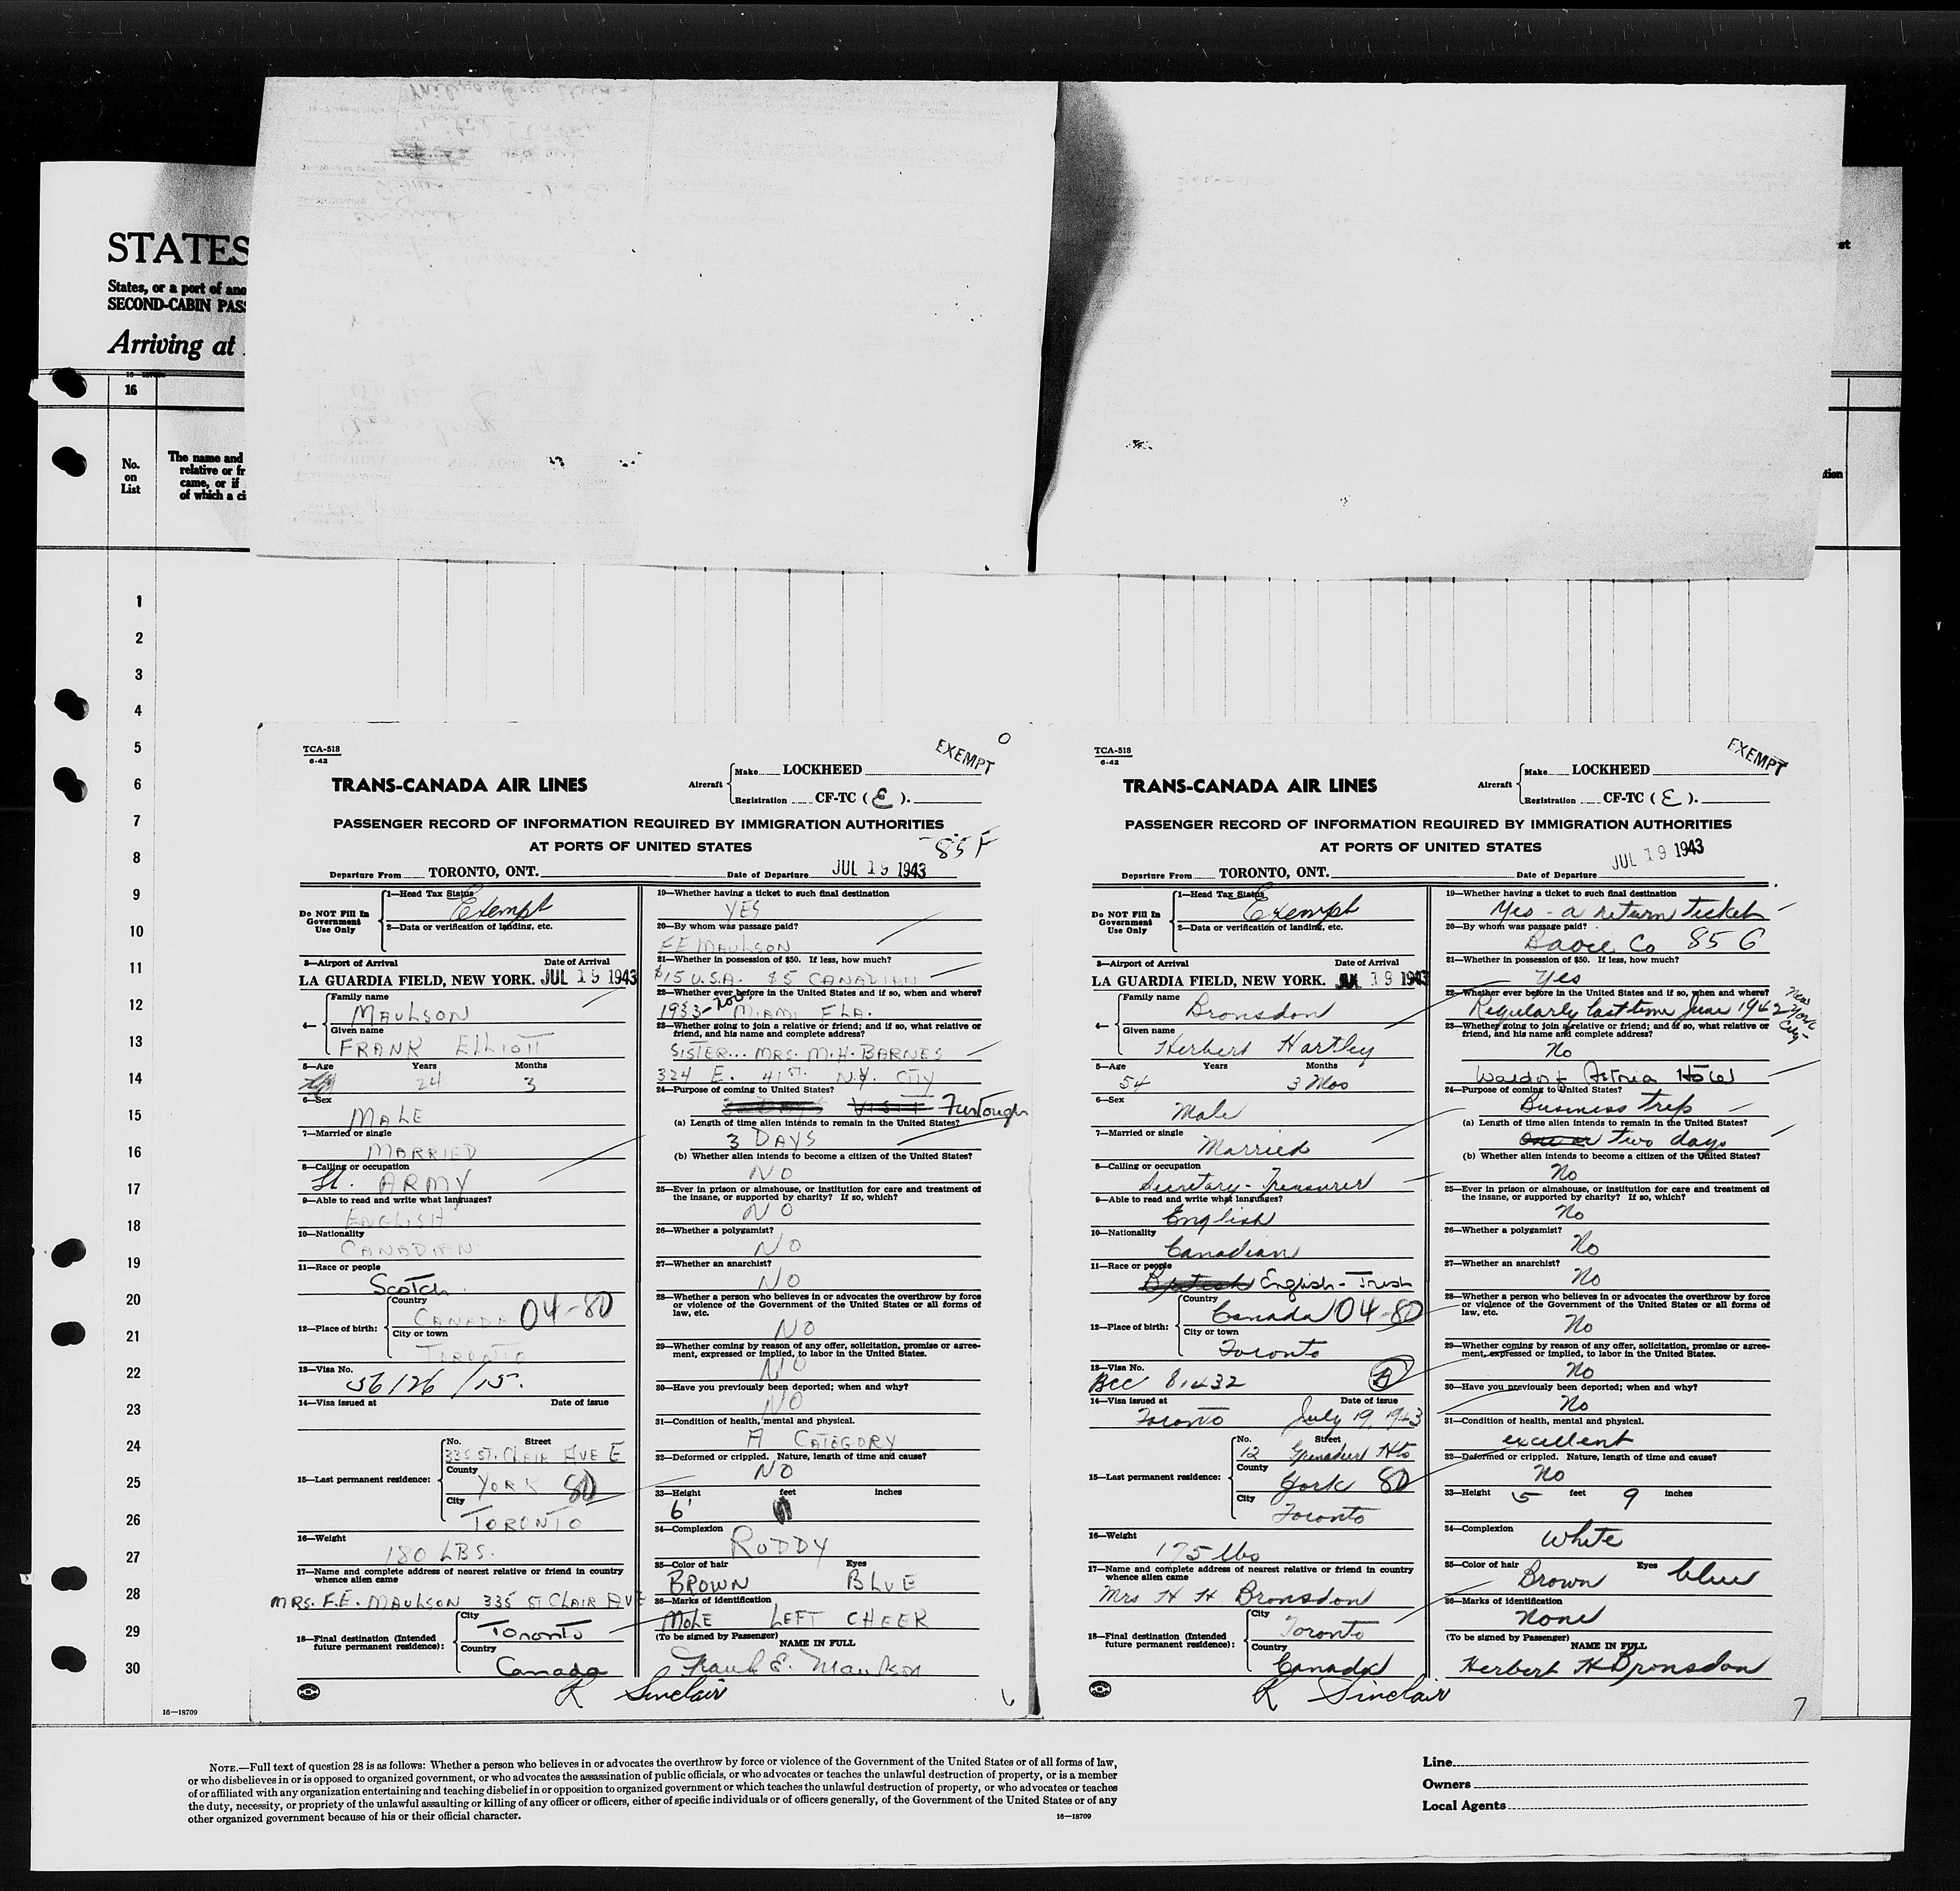 STATES
States, or a port of ano
SECOND-CABIN PAS
Arriving at
16
No.
on
List
The name and
relative or fr
came, or if
of which a ci
st
tion
1
2
3
4
5
6
7
8
9
10
11
12
13
14
15
16
17
18
19
20
21
22
23
24
25
26
27
28
29
30
16—18709
TCA-518
6-42
EXEMPT
TRANS-CANADA AIR LINES
Aircraft
Make LOCKHEED
Registration CF-TC ( E ).
PASSENGER RECORD OF INFORMATION REQUIRED BY IMMIGRATION AUTHORITIES
AT PORTS OF UNITED STATES
85 F
Departure From TORONTO, ONT. Date of Departure JUL 19 1943
Do NOT Fill In
Government
Use Only
1—Head Tax Status
Exempt
2—Data or verification of landing, etc.
3—Airport of Arrival Date of Arrival
LA GUARDIA FIELD, NEW YORK. JUL 19 1943
4—
Family name
MAULSON
Given name
FRANK ELLIOTT
5—Age Years Months
24 3
6—Sex
MALE
7—Married or single
MARRIED
8—Calling or occupation
Lt. ARMY
9—Able to read and write what languages?
ENGLISH
10—Nationality
CANADIAN
11—Race or people
Scotch
12—Place of birth:
Country
CANADA 04-80
City or town
TORONTO
13—Visa No.
56126/15.
14—Visa issued at Date of issue
15—Last permanent residence:
No. Street
335 ST. CLAIR AVE E
County
YORK 80
City
TORONTO
16—Weight
180 LBS.
17—Name and complete address of nearest relative or friend in country
whence alien came
MRS. F.E. MAULSON 335 ST CLAIR AVE
18—Final destination (Intended
future permanent residence):
City
Toronto
Country
Canada
19—Whether having a ticket to such final destination
YES
20—By whom was passage paid?
F E MAULSON
21—Whether in possession of $50. If less, how much?
$15 U.S.A. $5 CANADIAN
22—Whether ever before in the United States and if so, when and where?
1933- MIAMI FLA.
23—Whether going to join a relative or friend; and if so, what relative or
friend, and his name and complete address?
SISTER... MRS. M.H. BARNES
324 E. 41 ST. N.Y. CITY
24—Purpose of coming to United States?
VISIT Furlough
(a) Length of time alien intends to remain in the United States?
3 DAYS
(b) Whether alien intends to become a citizen of the United States?
NO
25—Ever in prison or almshouse, or institution for care and treatment of
the insane, or supported by charity? If so, which?
NO
26—Whether a polygamist?
NO
27—Whether an anarchist?
NO
28—Whether a person who believes in or advocates the overthrow by force
or violence of the Government of the United States or all forms of
law, etc.
NO
29—Whether coming by reason of any offer, solicitation, promise or agree-
ment, expressed or implied, to labor in the United States.
NO
30—Have you previously been deported; when and why?
NO
31—Condition of health, mental and physical.
A CATEGORY
32—Deformed or crippled. Nature, length of time and cause?
NO
33—Height feet inches
6'
34—Complexion
RUDDY
35—Color of hair Eyes
BROWN BLUE
36—Marks of identification
MOLE LEFT CHEEK
(To be signed by Passenger)
NAME IN FULL
Frank E. Maulson
R Sinclair
6
TCA-518
6-42
EXEMPT
TRANS-CANADA AIR LINES
Aircraft
Make LOCKHEED
Registration CF-TC ( E ).
PASSENGER RECORD OF INFORMATION REQUIRED BY IMMIGRATION AUTHORITIES
AT PORTS OF UNITED STATES
Departure From TORONTO, ONT. Date of Departure JUL 19 1943
Do NOT Fill In
Government
Use Only
1—Head Tax Status
Exempt
2—Data or verification of landing, etc.
3—Airport of Arrival Date of Arrival
LA GUARDIA FIELD, NEW YORK. JUL 19 1943
4—
Family name
Bronsdon
Given name
Herbert Hartley
5—Age Years Months
54 3 Mos
6—Sex
Male
7—Married or single
Married
8—Calling or occupation
Secretary-Treasurer
9—Able to read and write what languages?
English
10—Nationality
Canadian
11—Race or people
British English-Irish
12—Place of birth:
Country
Canada 04-80
City or town
Toronto
13—Visa No.
BCC 81432
14—Visa issued at Date of issue
Toronto July 19, 1943
15—Last permanent residence:
No. Street
12 Grenadier Hts
County
York 80
City
Toronto
16—Weight
175 lbs
17—Name and complete address of nearest relative or friend in country
whence alien came
Mrs H H Bronsdon
18—Final destination (Intended
future permanent residence):
City
Toronto
Country
Canada
19—Whether having a ticket to such final destination
Yes - a return ticket
20—By whom was passage paid?
Co 85 G
21—Whether in possession of $50. If less, how much?
Yes
22—Whether ever before in the United States and if so, when and where?
Regularly last time June 1942 New York City
23—Whether going to join a relative or friend; and if so, what relative or
friend, and his name and complete address?
No
Waldorf Astoria Hotel
24—Purpose of coming to United States?
Business trip
(a) Length of time alien intends to remain in the United States?
One or two days
(b) Whether alien intends to become a citizen of the United States?
No
25—Ever in prison or almshouse, or institution for care and treatment of
the insane, or supported by charity? If so, which?
No
26—Whether a polygamist?
No
27—Whether an anarchist?
No
28—Whether a person who believes in or advocates the overthrow by force
or violence of the Government of the United States or all forms of
law, etc.
No
29—Whether coming by reason of any offer, solicitation, promise or agree-
ment, expressed or implied, to labor in the United States.
No
30—Have you previously been deported; when and why?
No
31—Condition of health, mental and physical.
excellent
32—Deformed or crippled. Nature, length of time and cause?
No
33—Height 5 feet 9 inches
34—Complexion
White
35—Color of hair Eyes
Brown blue
36—Marks of identification
None
(To be signed by Passenger)
NAME IN FULL
Herbert H Bronsdon
R Sinclair
7
NOTE.—Full text of question 28 is as follows: Whether a person who believes in or advocates the overthrow by force or violence of the Government of the United States or of all forms of law,
or who disbelieves in or is opposed to organized government, or who advocates the assassination of public officials, or who advocates or teaches the unlawful destruction of property, or is a member
of or affiliated with any organization entertaining and teaching disbelief in or opposition to organized government or which teaches the unlawful destruction of property, or who advocates or teaches
the duty, necessity, or propriety of the unlawful assaulting or killing of any officer or officers, either of specific individuals or of officers generally, of the Government of the United States or of any
other organized government because of his or their official character.
16—18709
Line
Owners
Local Agents